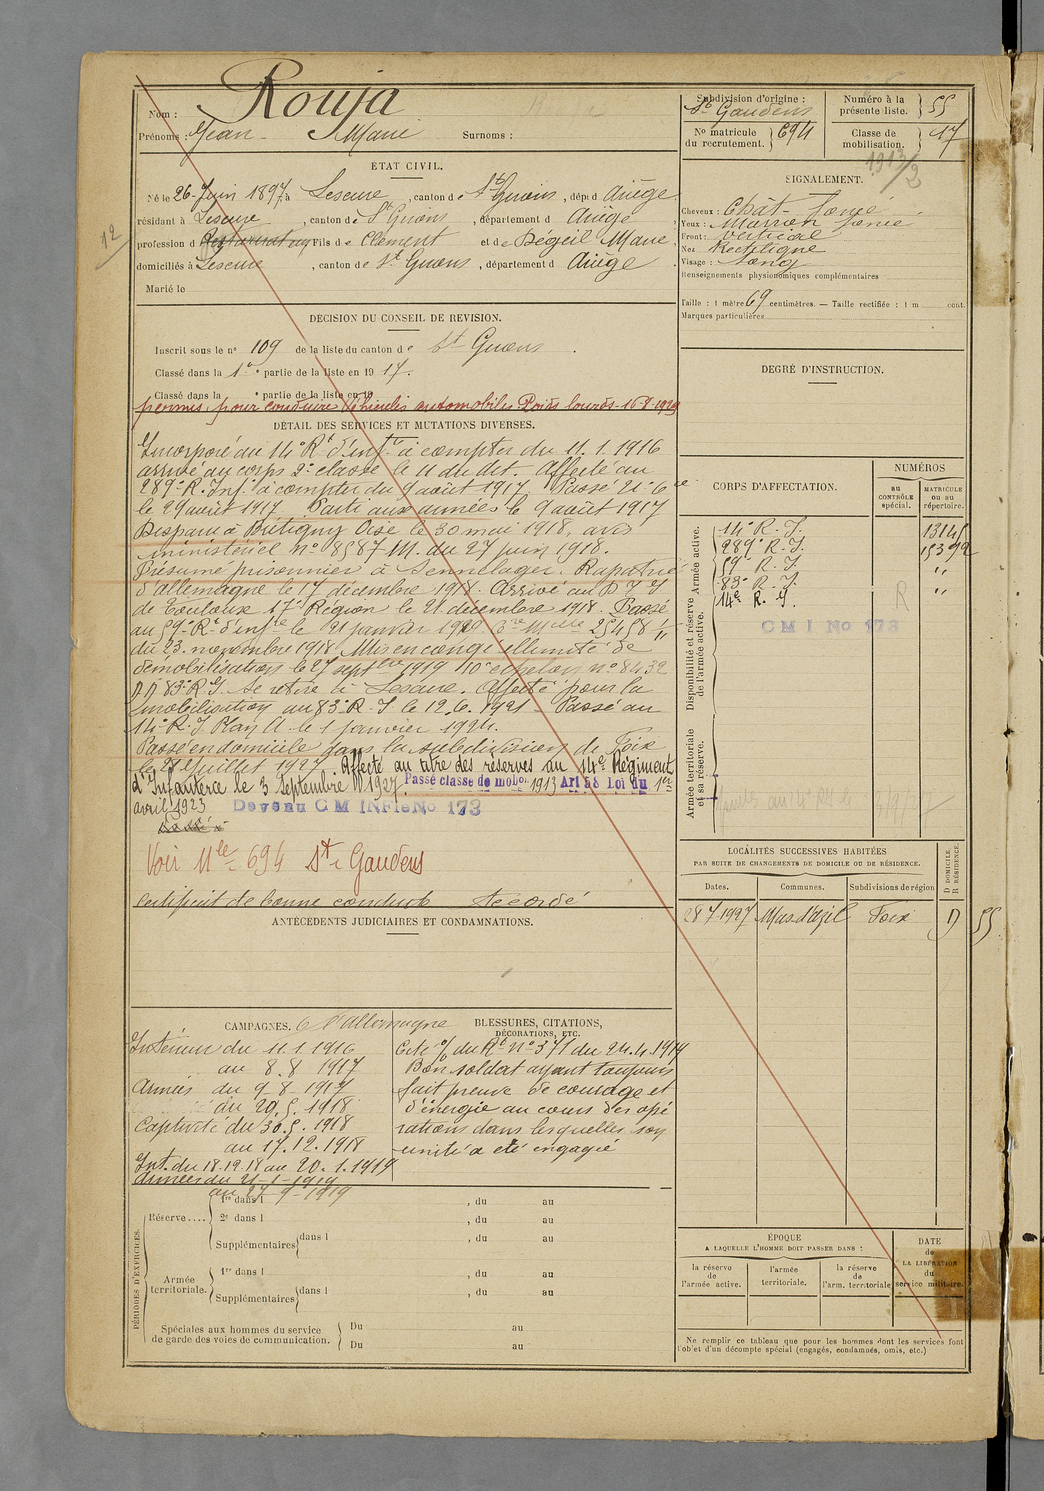 Nom : Rouja
Prénoms : Jean Marie Surnoms :
ÉTAT CIVIL.
Né le 26 Juin 1897, à Lescure, canton de St Girons, dép d Ariège
résidant à Lescure, canton de St Girons, département d Ariège
profession d Fils de Clément et de Dégeil Marie
domiciliés à Lescure, canton de St Girons, département d Ariège
Marié le
12
DÉCISION DU CONSEIL DE REVISION.
Inscrit sous le n° 109 de la liste du canton de St Girons.
Classé dans la 1re partie de la liste en 1917.
Classé dans la e partie de la liste en 19
permis pour conduire Véhicules automobiles Poids lourds 16 1929
DÉTAIL DES SERVICES ET MUTATIONS DIVERSES.
Incorporé au 14e Rt d'infie à compter du 11.1.1916
arrivé au corps 2e classe le 11 du dit. Affecté au
289e R. Inf. à compter du 9 août 1917. Passé 21e Cie
le 29 août 1917. Parti aux armées le 9 août 1917
Disparu à Brétigny Oise le 30 mai 1918, avis
ministériel n° 8587 M. du 27 juin 1918.
Présumé prisonnier à Sennelager. Rapatrié
d'allemagne le 17 décembre 1918. Arrivé au D I I
de Toulouse 17e Région le 21 décembre 1918. Passé
au 59e Rt d'infie le 21 janvier 1919. 25458
du 23 novembre 1918 Mis en congé illimité de
démobilisation le 27 septbre 1919 10e échelon n° 8432
D.D 83e R.I. Se retire à Lescure. Affecté pour la
mobilisation au 83e R.I le 12.6.1921 Passé au
14e R.I Plan A. le 1 janvier 1924.
Passé en domicile dans la subdivision de Foix
le 28 juillet 1927. Affecté au titre des réserves au 14e Régiment
d'Infanterie le 3 Septembre 1927. Passé classe de mobon 1913 Art 58 Loi du 1er
avril 1923 Devenu CM INFie No 173
Voir Mle 694 St Gaudens
Certificat de bonne conduite Accordé
ANTÉCÉDENTS JUDICIAIRES ET CONDAMNATIONS.
CAMPAGNES. C d'allemagne
Intérieur du 11.1.1916
au 8.8 1917
Armées du 9.8.1917
au 29.5.1918
Captivité du 30.5.1918
au 17.12.1918
Int. du 18.12.18 au 20.1.1919
Armées du 21-1-1919
au 27-9-1919
BLESSURES, CITATIONS,
DÉCORATIONS, ETC.
Cité % du Rt n° 371 du 24.4.1919
Bon soldat ayant toujours
fait preuve de courage et
d'énergie au cours des opé
rations dans lesquelles son
unité a été engagée
PÉRIODES D'EXERCICES.
Réserve....
1re dans l , du au
2e dans l , du au
Supplémentaires dans l , du au
Armée
territoriale.
1re dans l , du au
Supplémentaires dans l , du au
Spéciales aux hommes du service
de garde des voies de communication.
Du au
Du au
Subdivision d'origine :
St Gaudens
No matricule
du recrutement. 694
Numéro à la
présente liste. 55
Classe de
mobilisation. 17
1913/3
SIGNALEMENT.
Cheveux : Chât. foncé
Yeux : Marron foncé
Front : Vertical
Nez Rectiligne
Visage : Long
Renseignements physionomiques complémentaires
Taille : 1 mètre 69 centimètres. — Taille rectifiée : 1 m cent.
Marques particulières
DEGRÉ D'INSTRUCTION.
CORPS D'AFFECTATION.
NUMÉROS
au
CONTRÔLE
spécial.
MATRICULE
ou au
répertoire.
Armée active.
14e R. I. 13145
289e R. I. 15392
59e R. I. "
83e R. I. "
14e R. I. R
Disponibilité et réserve
de l'armée active.
CMI No 173
Armée territoriale
et sa réserve.
LOCALITÉS SUCCESSIVES HABITÉES
PAR SUITE DE CHANGEMENTS DE DOMICILE OU DE RÉSIDENCE.
D DOMICILE.
R RÉSIDENCE.
Dates. Communes. Subdivisions de région
28 7 1927 Mas d'azil Foix D 55
ÉPOQUE
A LAQUELLE L'HOMME DOIT PASSER DANS :
la réserve
de
l'armée active.
l'armée
territoriale.
la réserve
de
l'arm. territoriale
DATE
de
LA LIBÉRATION
du
service militaire.
Ne remplir ce tableau que pour les hommes dont les services font
l'objet d'un décompte spécial (engagés, condamnés, omis, etc.)